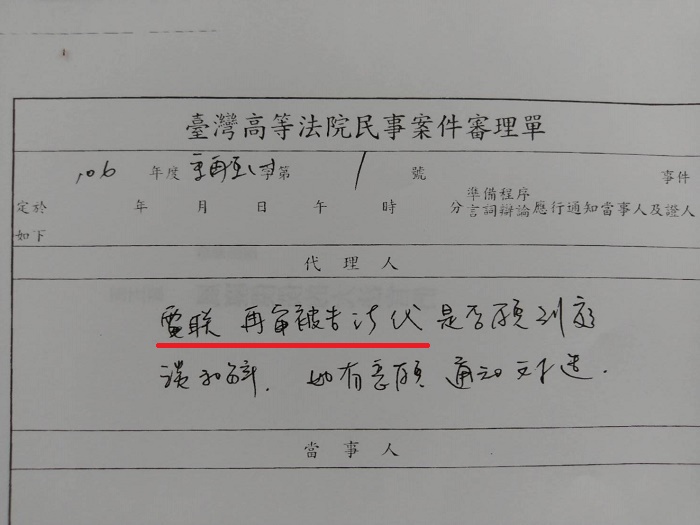 臺灣高等法院民事案件審理單
106 年度 重再更 字第 1 號 事件
定於 年 月 日 午 時 分 準備程序 言詞辯論 應行通知當事人及證人
如下
代理人
電联 再審被告法代 是否願到庭
談和解. 如有意願 通知对造.
當事人